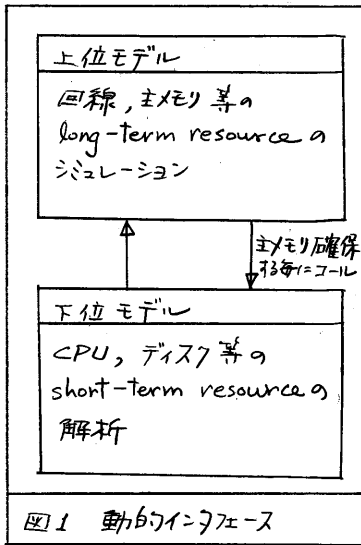 上位モデル
回線,主メモリ等の
long-term resourceの
シミュレーション
主メモリ確保
する毎にコール
下位モデル
CPU,ディスク等の
short-term resourceの
解析
図1 動的インタフェース